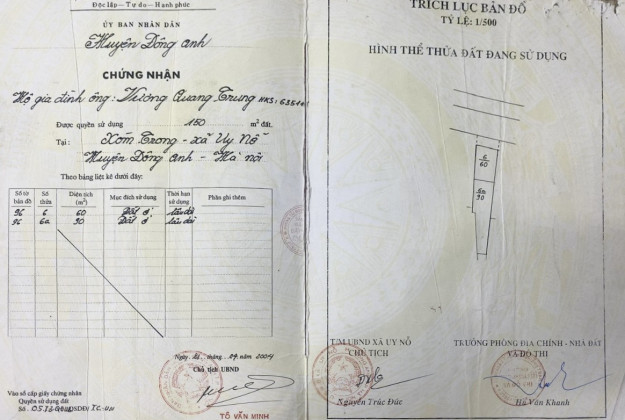 Độc lập - Tự do - Hạnh phúc
ỦY BAN NHÂN DÂN
Huyện Đông anh
CHỨNG NHẬN
Hộ gia đình ông: Vương Quang Trung HKS:
Được quyền sử dụng 150 m² đất.
Tại: Xóm Trong - xã Uy Nỗ
Huyện Đông anh - Hà nội
Theo bảng liệt kê dưới đây:
Số tờ bản đồ Số thửa Diện tích (m²) Mục đích sử dụng Thời hạn sử dụng Phần ghi thêm
96 6 60 Đất ở lâu dài
96 6a 90 Đất ở lâu dài
Ngày tháng 2004
Chủ tịch UBND
TÔ VĂN MINH
Vào sổ cấp giấy chứng nhận
Quyền sử dụng đất
Số:
TRÍCH LỤC BẢN ĐỒ
TỶ LỆ: 1/500
HÌNH THỂ THỬA ĐẤT ĐANG SỬ DỤNG
6
60
6a
90
T/M UBND XÃ UY NỖ
CHỦ TỊCH
Nguyễn Trúc Đúc
TRƯỞNG PHÒNG ĐỊA CHÍNH - NHÀ ĐẤT
VÀ ĐÔ THỊ
Hà Văn Khanh